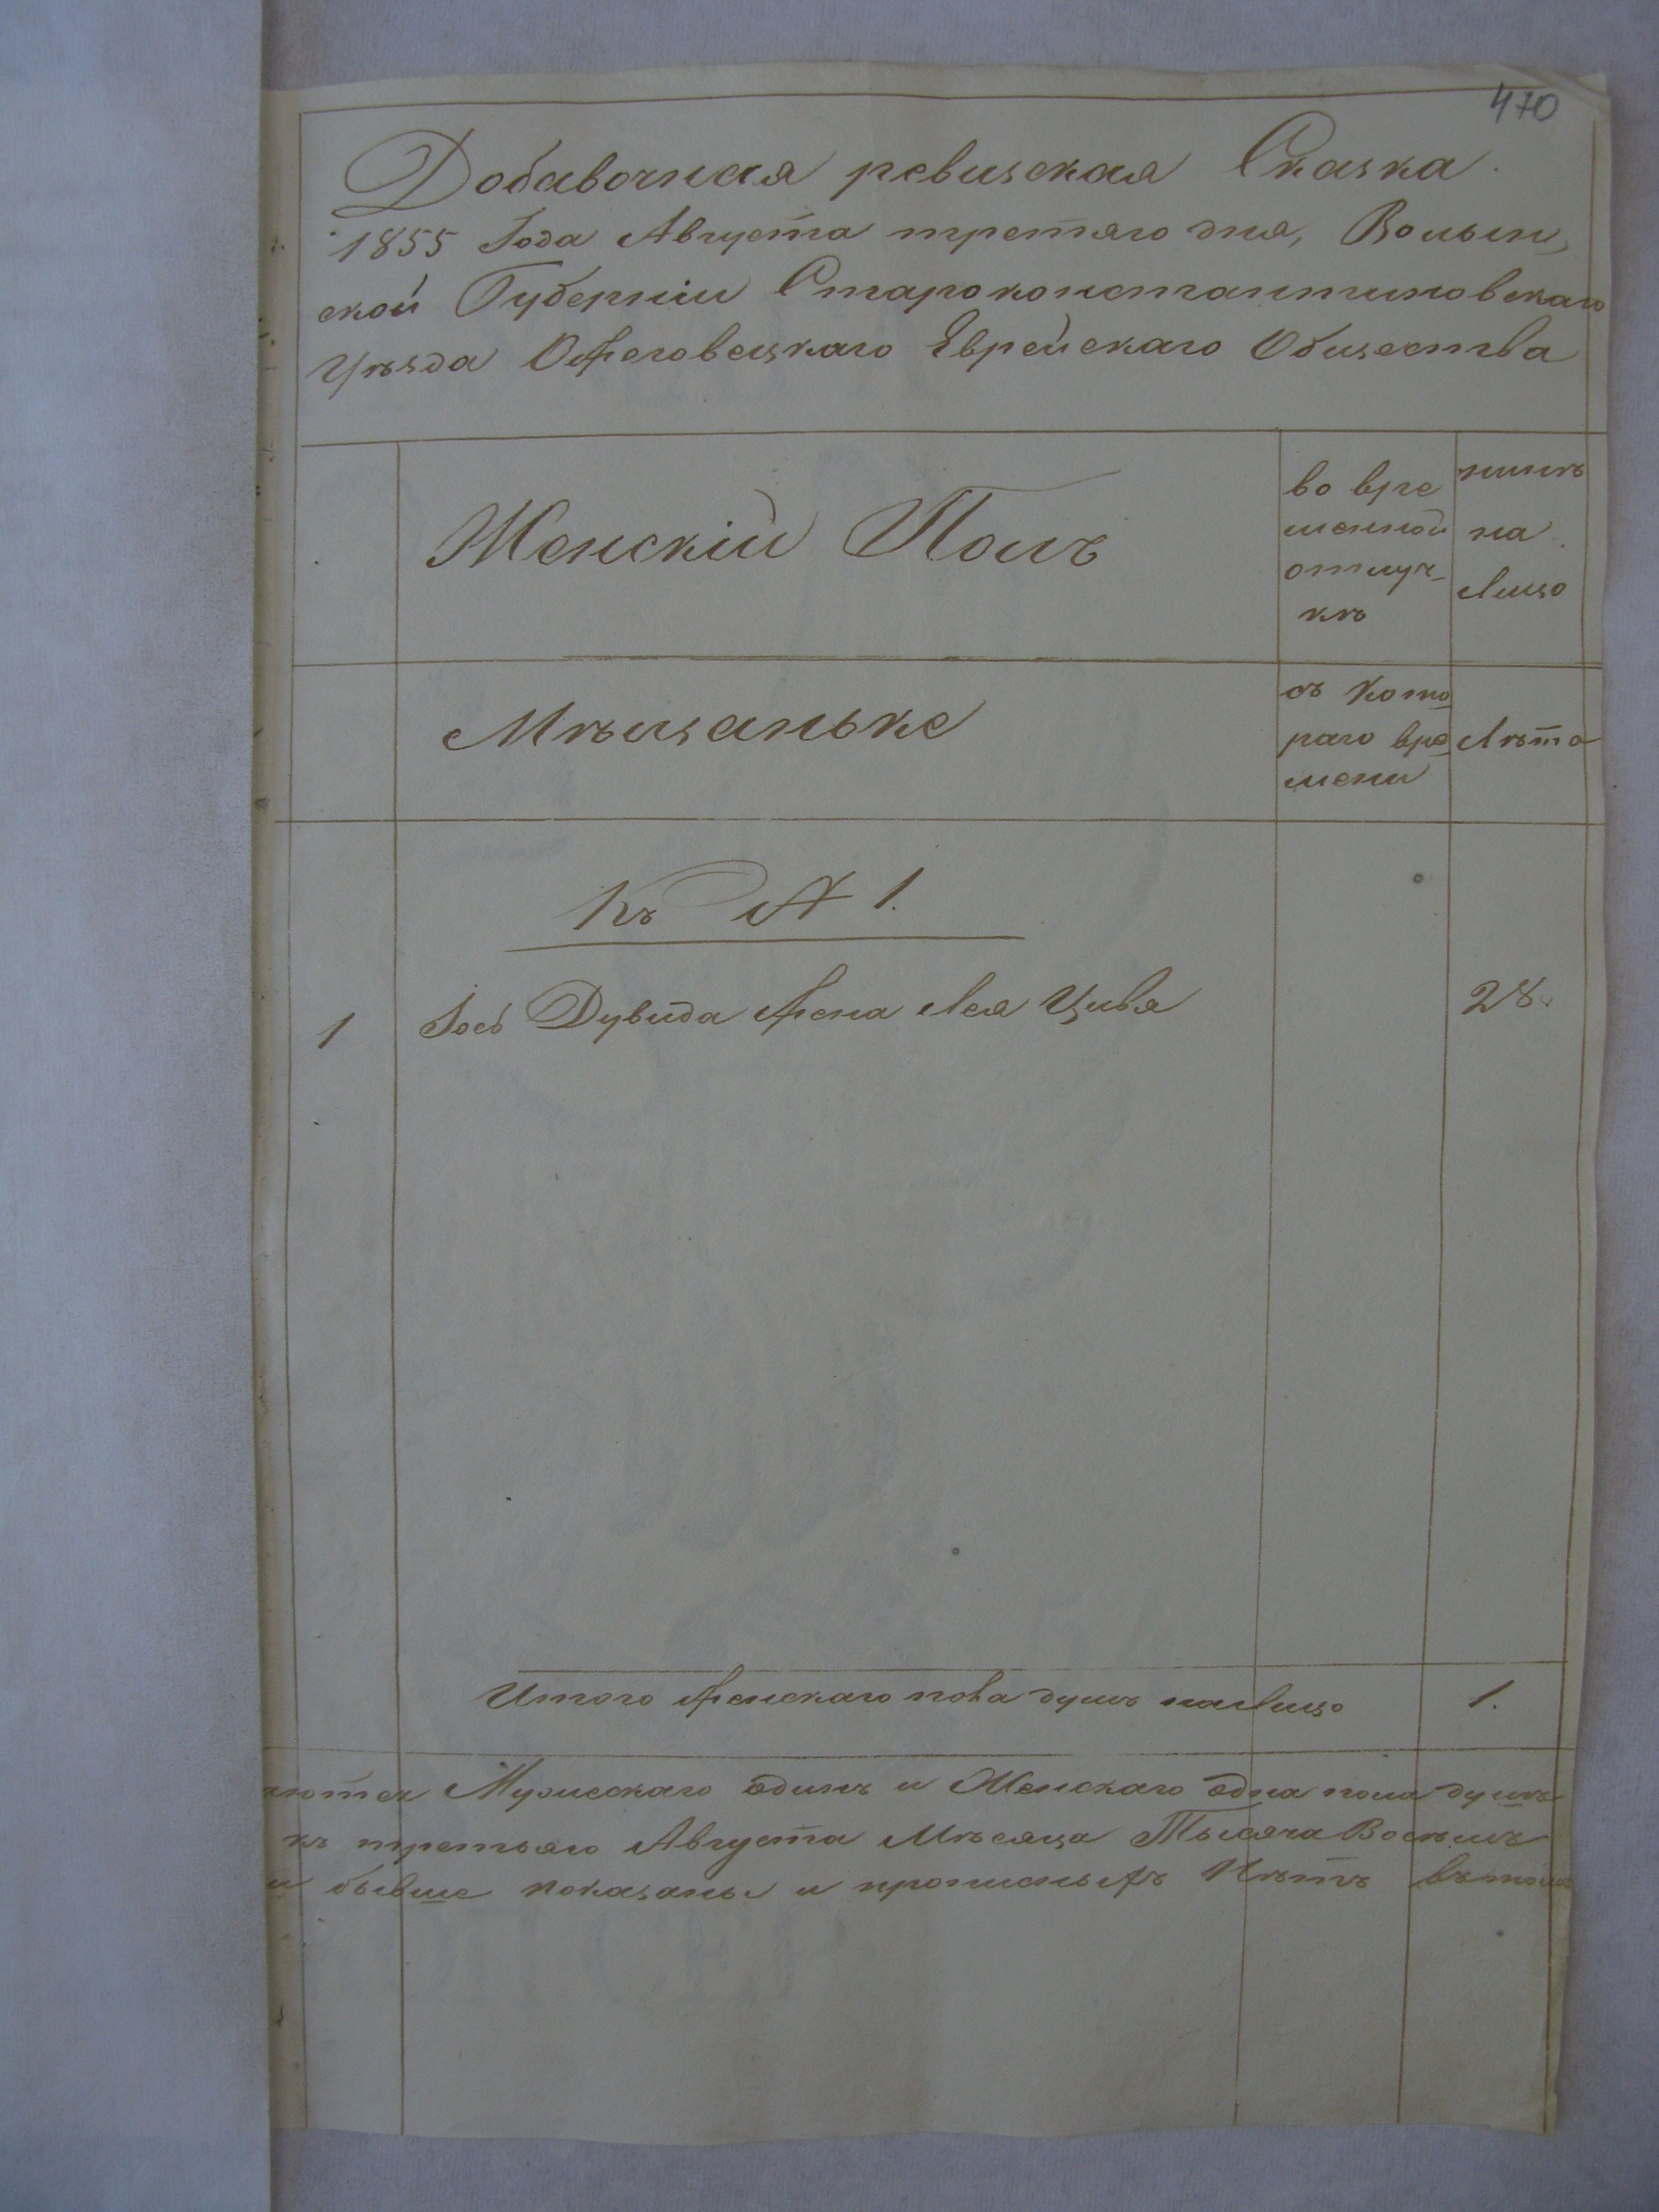 470
Добавочная ревизская Сказка.
1855 Года Августа третяго дня, Волын,
ской Губерніи Староконстантиновскаго
Уѣзда Ожеговецкаго Еврейскаго Общества
Женскій Полъ
во вре
менной
отлуч-
кѣ
нынѣ
на
Лицо
Мѣщаньке
съ Кото
раго вре
мени
Лѣта
Къ № 1.
1 Іось Дувида жена Лея Цивя 28.
Итого женскаго пола душъ на Лицо 1.
ются Мужескаго один и Женскаго одна пола душъ
къ третьяго Августа Мѣсяца Тысяча Восемъ
и бывше показаны и прописныхъ Нѣтъ въ томъ